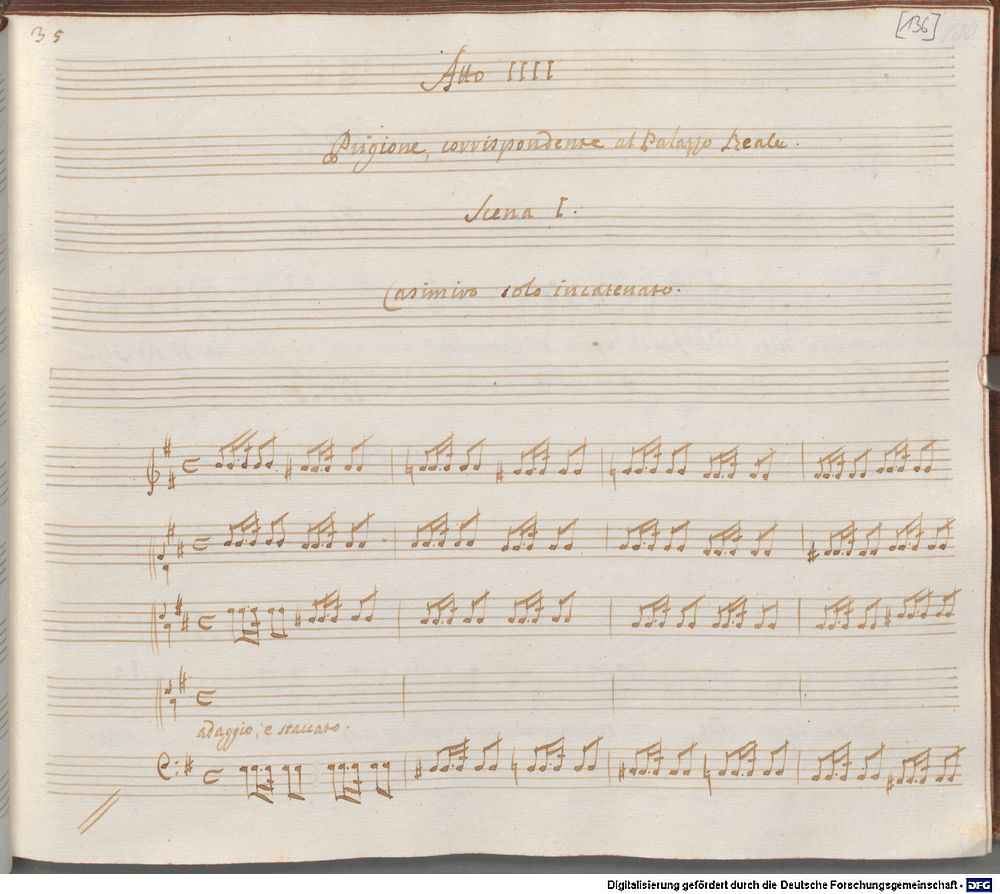 35
[136]
Atto IIII
Prigione, corrispondente al Palazzo Reale.
Scena I.
Casimiro solo incatenato.
adaggio, e staccato.
Digitalisierung gefördert durch die Deutsche Forschungsgemeinschaft - DFG